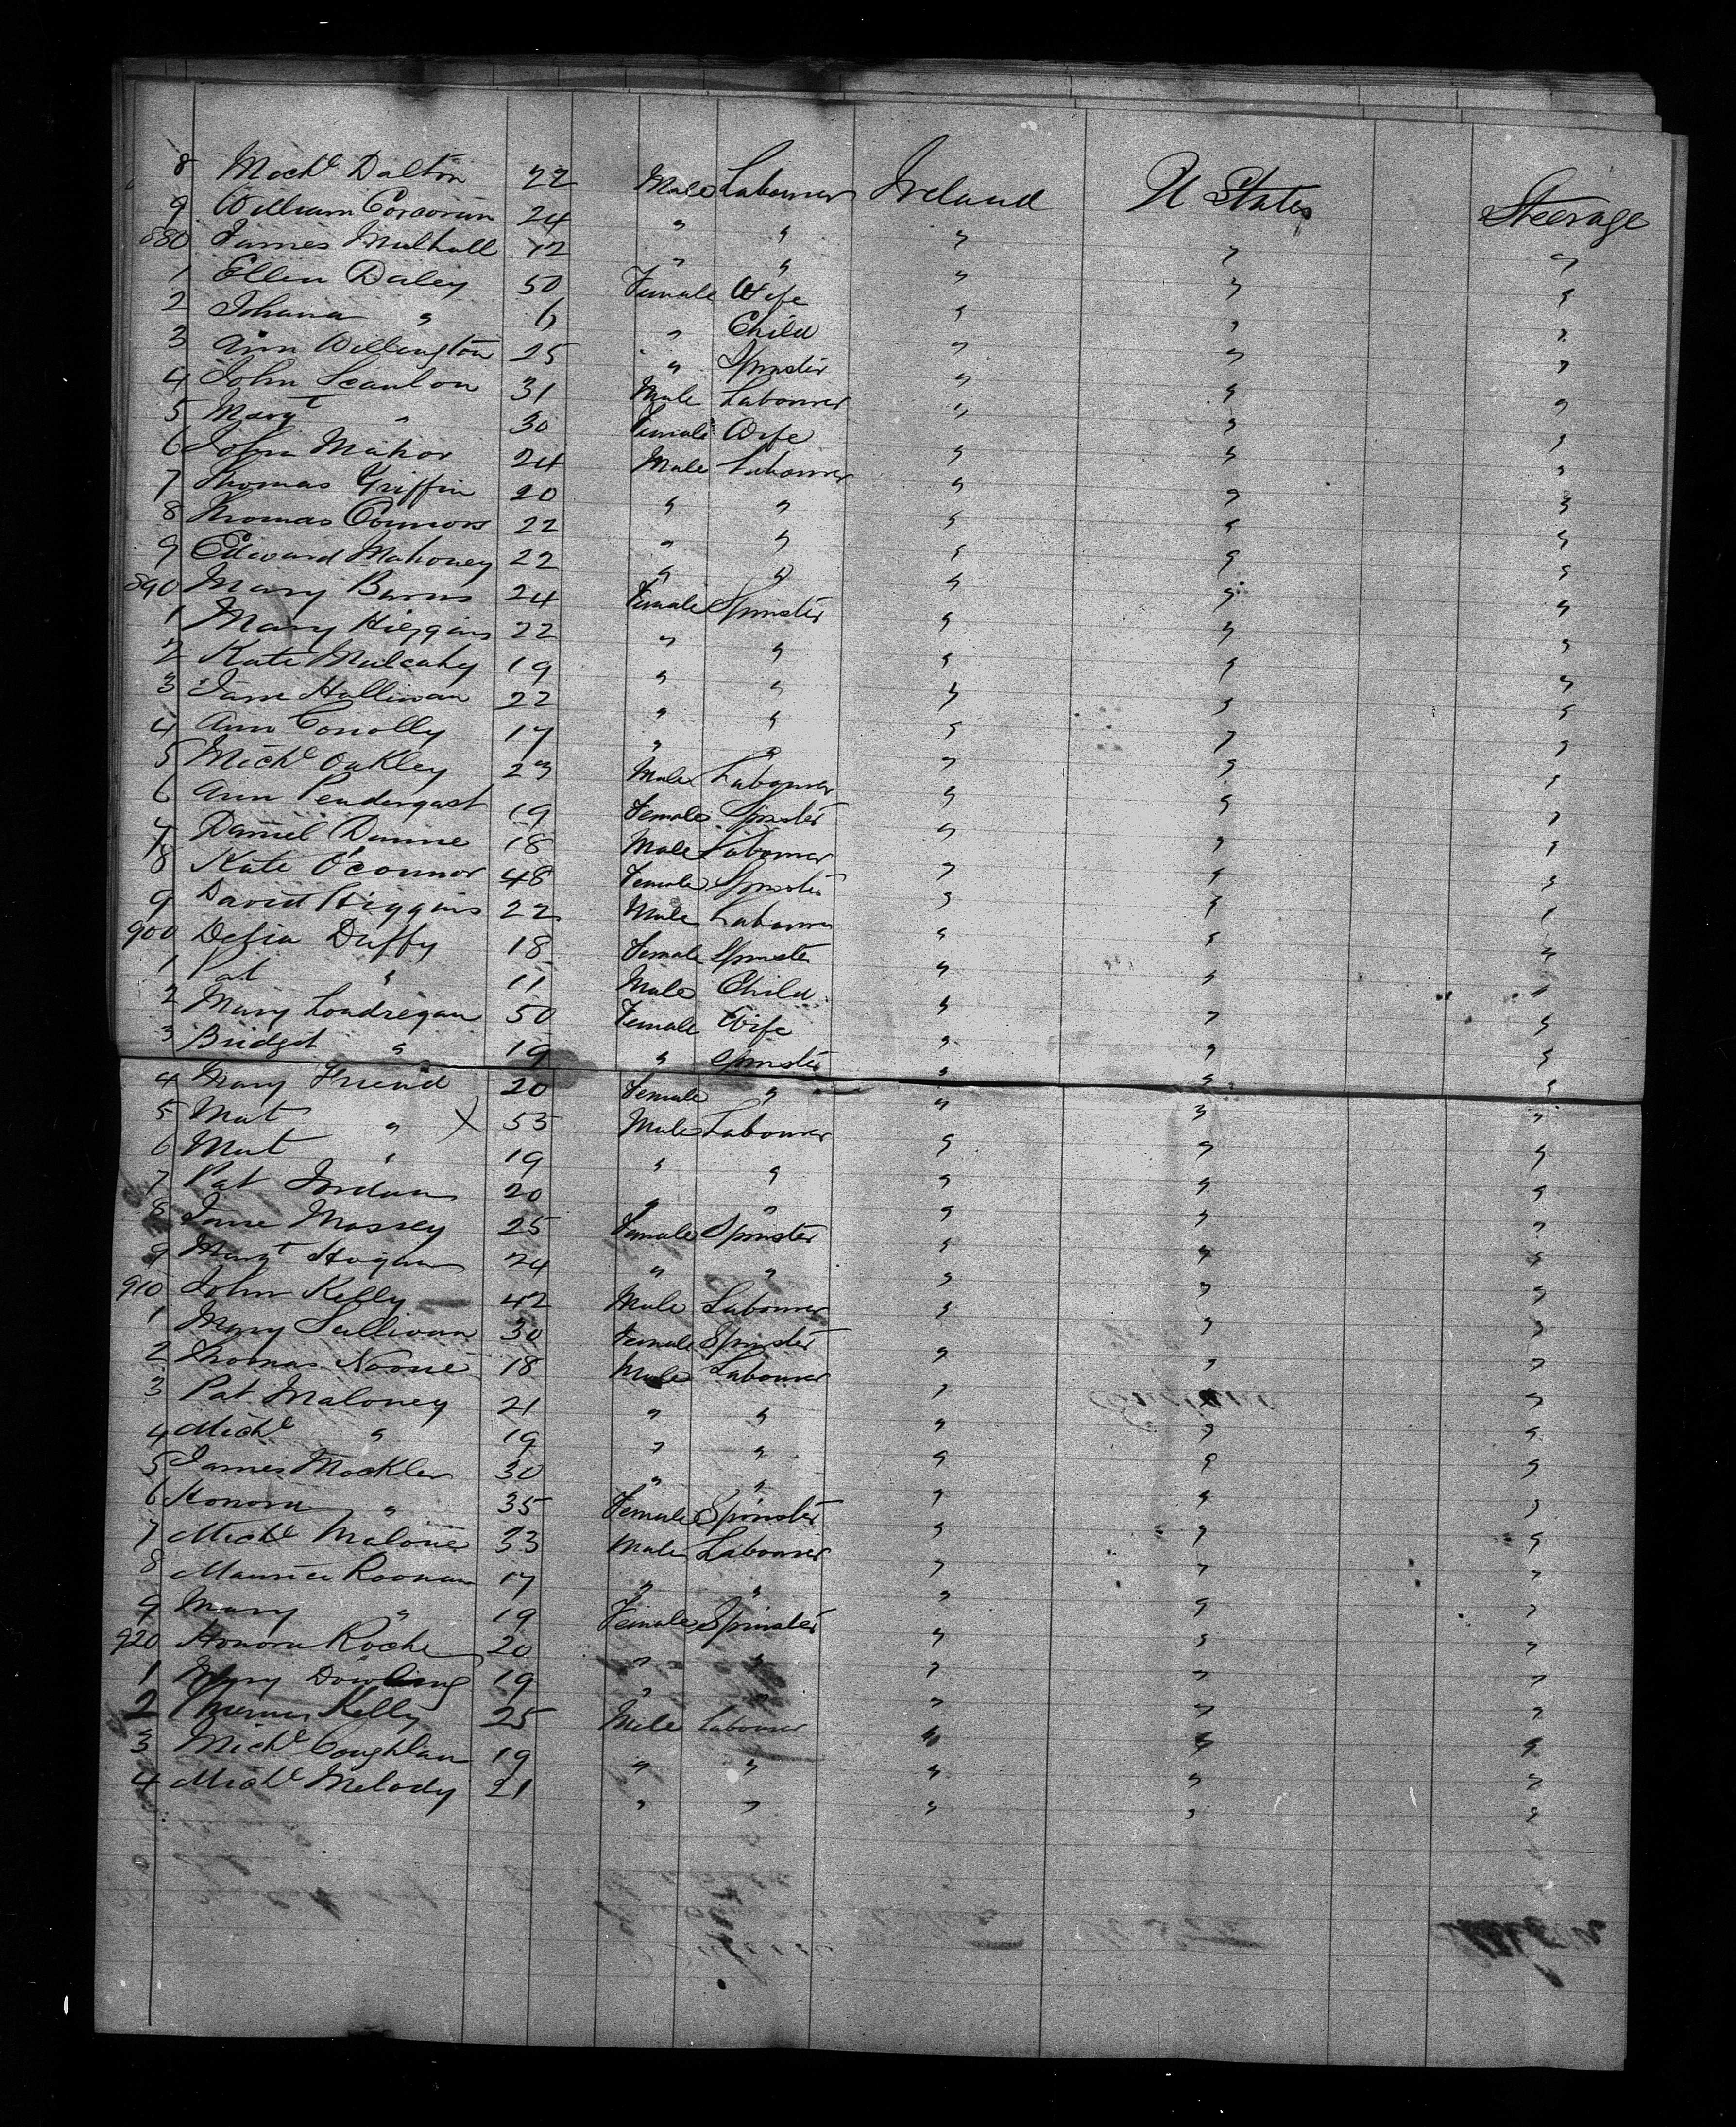 8 Mich.l Dalton 22 Male Labourer Ireland U States Steerage
9 William Corcoran 24 " " " " "
880 James Mulhall 12 " " " " "
1 Ellen Daley 50 Female Wife " " "
2 Johana " 6 " Child " " "
3 Ann Willington 25 " Spinster " " "
4 John Scanlon 31 Male Labourer " " "
5 Margt " 30 Female Wife " " "
6 John Mahor 24 Male Labourer " " "
7 Thomas Griffin 20 " " " " "
8 Thomas Connors 22 " " " " "
9 Edward Mahoney 22 " " " " "
890 Mary Barns 24 Female Spinster " " "
1 Mary Higgins 22 " " " " "
2 Kate Mulcahy 19 " " " " "
3 Jane Hallinan 22 " " " " "
4 Ann Conolly 17 " " " " "
5 Michl Oakley 23 Male Labourer " " "
6 Ann Pendergast 19 Female Spinster " " "
7 Daniel Dunne 18 Male Labourer " " "
8 Kate O'Connor 48 Female Spinster " " "
9 David Higgins 22 Male Labourer " " "
900 Delia Duffy 18 Female Spinster " " "
1 Pat " 11 Male Child " " "
2 Mary Londregan 50 Female Wife " " "
3 Bridget " 19 " Spinster " " "
4 Mary Friend 20 Female " " " "
5 Mat " X 53 Male Labourer " " "
6 Mat " 19 " " " " "
7 Pat Jordan 20 " " " " "
8 Jane Massey 25 Female Spinster " " "
9 Margt Hogan 24 " " " " "
910 John Kelly 42 Male Labourer " " "
1 Mary Sullivan 30 Female Spinster " " "
2 Thomas Noone 18 Male Labourer " " "
3 Pat Maloney 21 " " " " "
4 Michl " 19 " " " " "
5 James Mockler 30 " " " " "
6 Honora " 35 Female Spinster " " "
7 Michl Malone 33 Male Labourer " " "
8 Maurice Roonan 17 " " " " "
9 Mary " 19 Female Spinster " " "
920 Honora Roche 20 " " " " "
1 Mary Dowling 19 " " " " "
2 Thomas Kelly 25 Male Labourer " " "
3 Michl Coughlan 19 " " " " "
4 Michl Melody 21 " " " " "